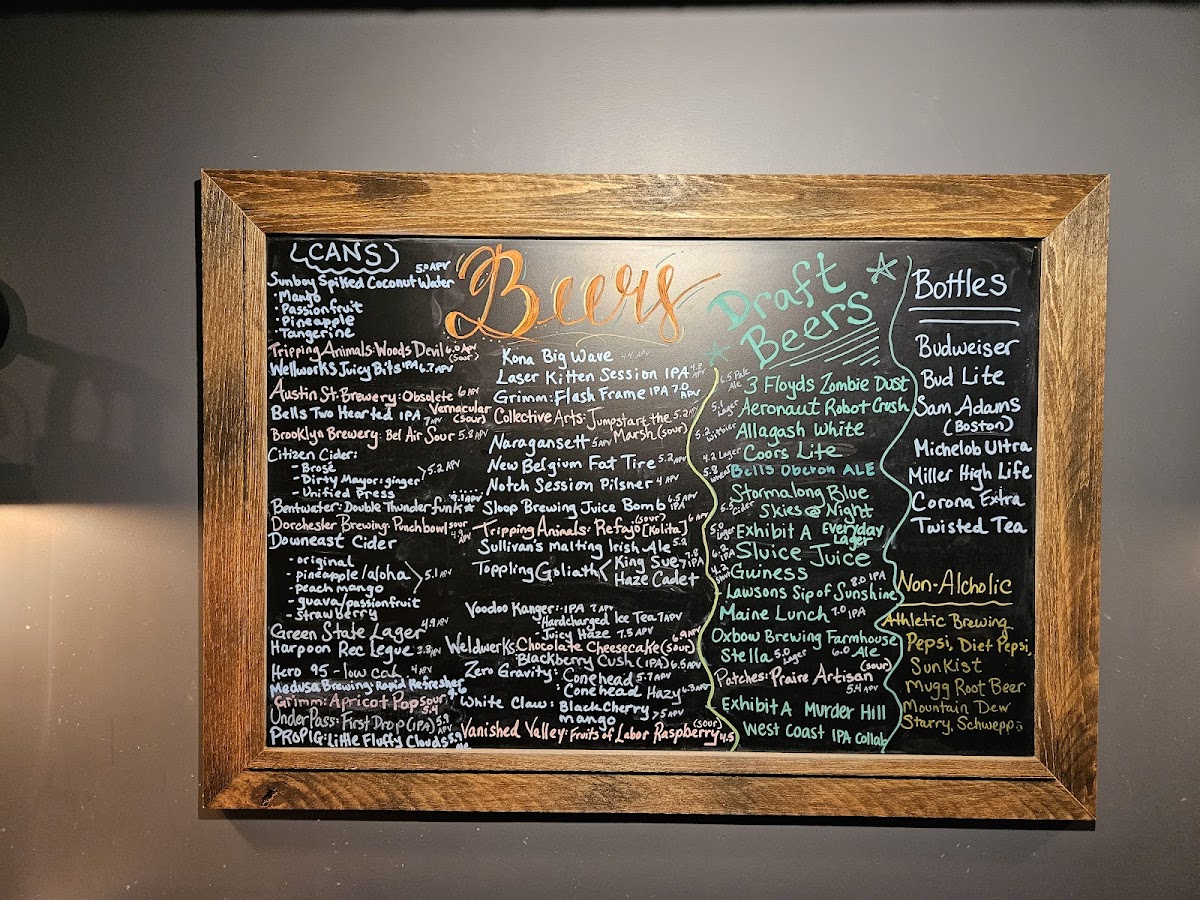 CANS
5.0 APV
Sunboy Spiked Coconut Water
· Mango
· Passionfruit
· Pineapple
· Tangerine
Tripping Animals: Woods Devil 6.0 APV (sour)
Wellworks Juicy Bits IPA 6.7 APV
Austin St. Brewery: Obsolete 6 APV
Bells Two Hearted IPA 7 APV Vernacular (sour)
Brooklyn Brewery: Bel Air Sour 5.8 APV
Citizen Cider:
- Brosé
- Dirty Mayor: ginger > 5.2 APV
- Unified Press
Bentwater: Double Thunderfunk 9.1 APV
Dorchester Brewing: Punchbowl sour
Downeast Cider
- original
- pineapple/aloha
- peach mango > 5.1 APV
- guava/passionfruit
- strawberry
Green State Lager 4.9 APV
Harpoon Rec Legue 3.8 APV
Hero 95 - low cal 4 APV
Medusa Brewing: Rapid Refresher
Grimm: Apricot Pop sour
UnderPass: First Drop (IPA) 5.9 APV
PROPIG: Little Fluffy Clouds 5.9 ale
Beers
Kona Big Wave 4.4 APV
Laser Kitten Session IPA 4.8 APV
Grimm: Flash Frame IPA 7.0 APV
Collective Arts: Jumpstart the 5.2 APV
Marsh (sour)
Naragansett 5 APV
New Belgium Fat Tire 5.2 APV
Notch Session Pilsner 4 APV
Sloop Brewing Juice Bomb 6.5 APV IPA
Tripping Animals: Refajo (sour) [Kolita] 6 APV
Sullivan's Malting Irish Ale 5.2
Toppling Goliath < King Sue 7.8 IPA
Haze Cadet 7 IPA
Voodoo Ranger: · IPA 7 APV
Hardcharged Ice Tea 7 APV
Juicy Haze 7.5 APV
Weldwerks: Chocolate Cheesecake (sour) 6.9 APV
Blackberry Cush (IPA) 6.5 APV
Zero Gravity: Conehead 5.7 APV
: Conehead Hazy 6.3 APV
White Claw: Black Cherry
mango > 5 APV
Vanished Valley: Fruits of Labor Raspberry (sour) 4.5
Draft
Beers
6.5 Pale Ale 3 Floyds Zombie Dust
5.1 Lager Aeronaut Robot Crush
5.2 witbier Allagash White
4.2 Lager Coors Lite
5.8 wheat Bells Oberon ALE
5.5 Cider Stormalong Blue
Skies @ Night
5.0 Lager Exhibit A Everyday
Lager
6.2 IPA Sluice Juice
4.2 Stout Guiness
Lawsons Sip of Sunshine 8.0 IPA
Maine Lunch 7.0 IPA
Oxbow Brewing Farmhouse
Stella 5.0 Lager 6.0 Ale
Patches: Praire Artisan (sour)
5.4 APV
Exhibit A Murder Hill
West Coast IPA Collab
Bottles
Budweiser
Bud Lite
Sam Adams
(Boston)
Michelob Ultra
Miller High Life
Corona Extra
Twisted Tea
Non-Alcholic
Athletic Brewing
Pepsi, Diet Pepsi,
SunKist
Mugg Root Beer
Mountain Dew
Starry, Schwepps